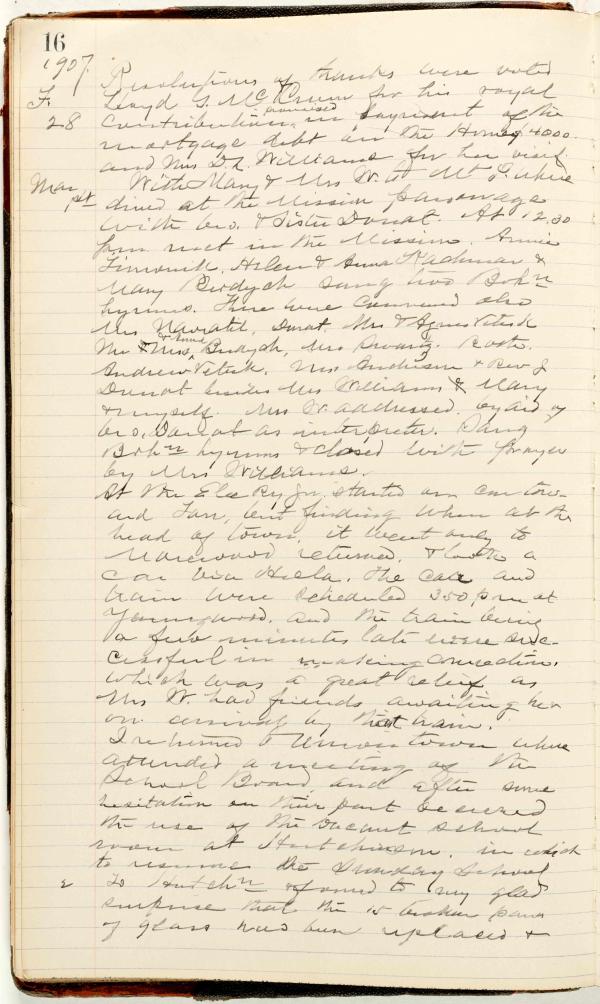 16
1907.
Resolutions of thanks were voted
F. Lloyd G. McCrum for his royal
28 contribution, promised in payment of the
mortgage debt on the Home $4000.
and Mrs D.L. Williams for her visit
Mar 1st With Mary & Mrs W. to Mt P. where
dined at the Mission parsonage
with bro. & Sister Donat. At 12.30
p.m. met in the Mission. Annie
Helen & Anna &
Mary Burdych sung two Bohn
hymns. There were convened also
Mrs Navratil, Donat, Mrs & Agnes Vitek
Mr & Mrs & Anna Budych, Mrs Swartz,
Andrew Vitek, Mrs Anderson & Rev J
Donat besides Mrs Williams & Mary
& myself. Mrs W. addressed, by aid of
bro. Donat as interpreter. Sang
Bohn hymns & closed with prayer
by Mrs Williams.
At the Elec Ry Jn. started on car tow-
ard Tarr, but finding when at the
head of town, it went only to
Morewood returned, & took a
car via Hecla. The car and
train were scheduled 350 p.m at
Youngwood, and the train being
a few minutes late were suc-
cessful in making connection.
which was a great relief as
Mrs W. had friends awaiting her
on arrival by that train.
I returned to Uniontown where
attended a meeting of the
School Board, and after some
hesitation on their part secured
the use of the vacant school
room at Hutchinson, in which
to resume the Sunday School
2 To Hutchn & found to my glad
surprise that the 15 broken panes
of glass had been replaced &